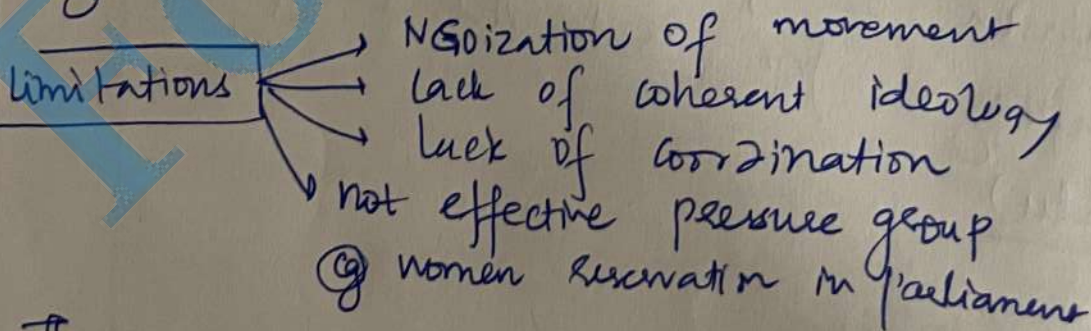 NGOization of movement
limitations
Lack of coherent ideology
Lack of coordination
not effective pressure group
eg women reservation in Parliament